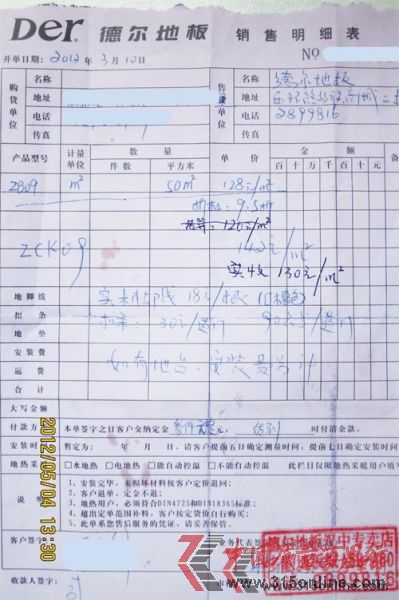 Der 德尔地板 销售明细表
开单日期: 2012 年 3 月 10 日 NO
购货单位 名称 售货单位 名称 德尔地板
地址 地址
电话 电话 2899816
传真 传真
产品型号 计量单位 数量 单价 金额 备
件数 平方米 百 十 万 千 百 十 元
ZB09 m² 50m² 128元/m²
9.5折
结算: 120元/m²
ZCK09 142元/m²
实收 130元/m²
地脚线 实木 线 18元/米
扣条 扣条: 30元/
地垫
安装费 如有地台,安装费另计
运费
合计
大写金额
付款方 本单签字之日客户交纳定金 货到 时付清余款。
安装时 暂定为: 年 月 日, 请客户提前五日确定测量时间, 提前七日确定安装时间
地热采 □水地热 □电地热 □能自动控温 □不能自动控温 此栏目仅限地热采暖用户填
说明 1、安装完毕, 未损坏材料按客户定价退回;
2、客户退单, 定金不退;
3、地热用户, 必须符合DIN4725和DIN18365标准;
4、超出定单范围补料, 客户按定货价自行购买;
5、此单系您售后服务的凭证, 请妥善保管。
客户签字 业务代表签
收款人签字:
2012/05/04 13:30
www.315online.com